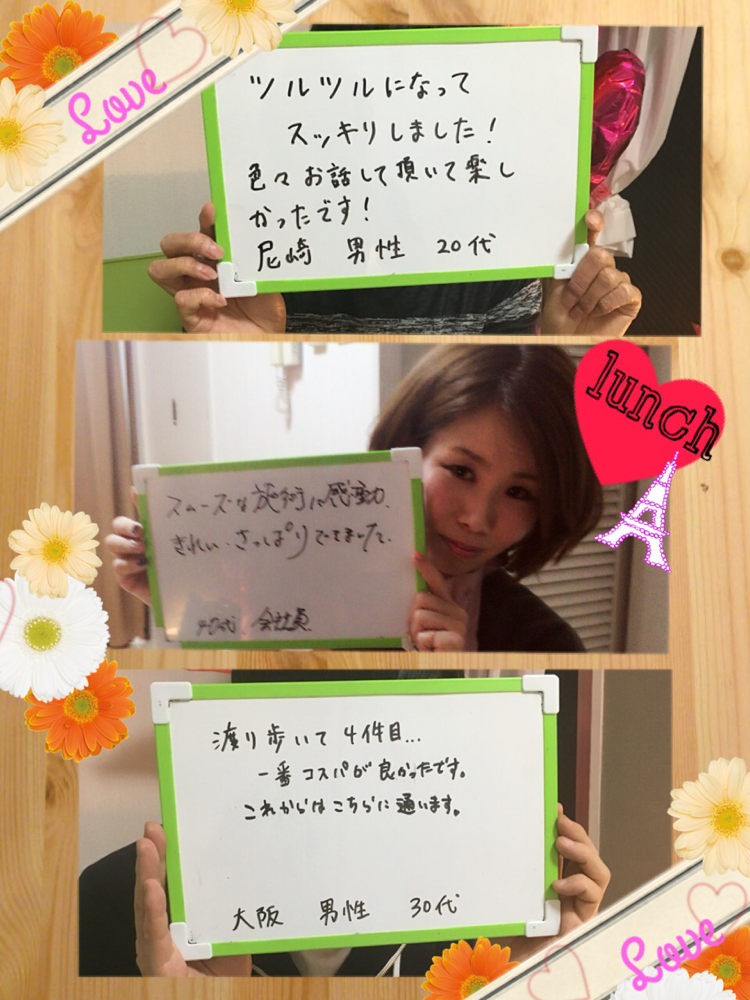 Love
ツルツルになって
スッキリしました!
色々お話して頂いて楽し
かったです!
尼崎 男性 20代
lunch
スムーズな施術に感動.
きれい、さっぱりできました。
40代、会社員
渡り歩いて 4件目...
一番コスパが良かったです。
これからはこちらに通います。
大阪 男性 30代
Love